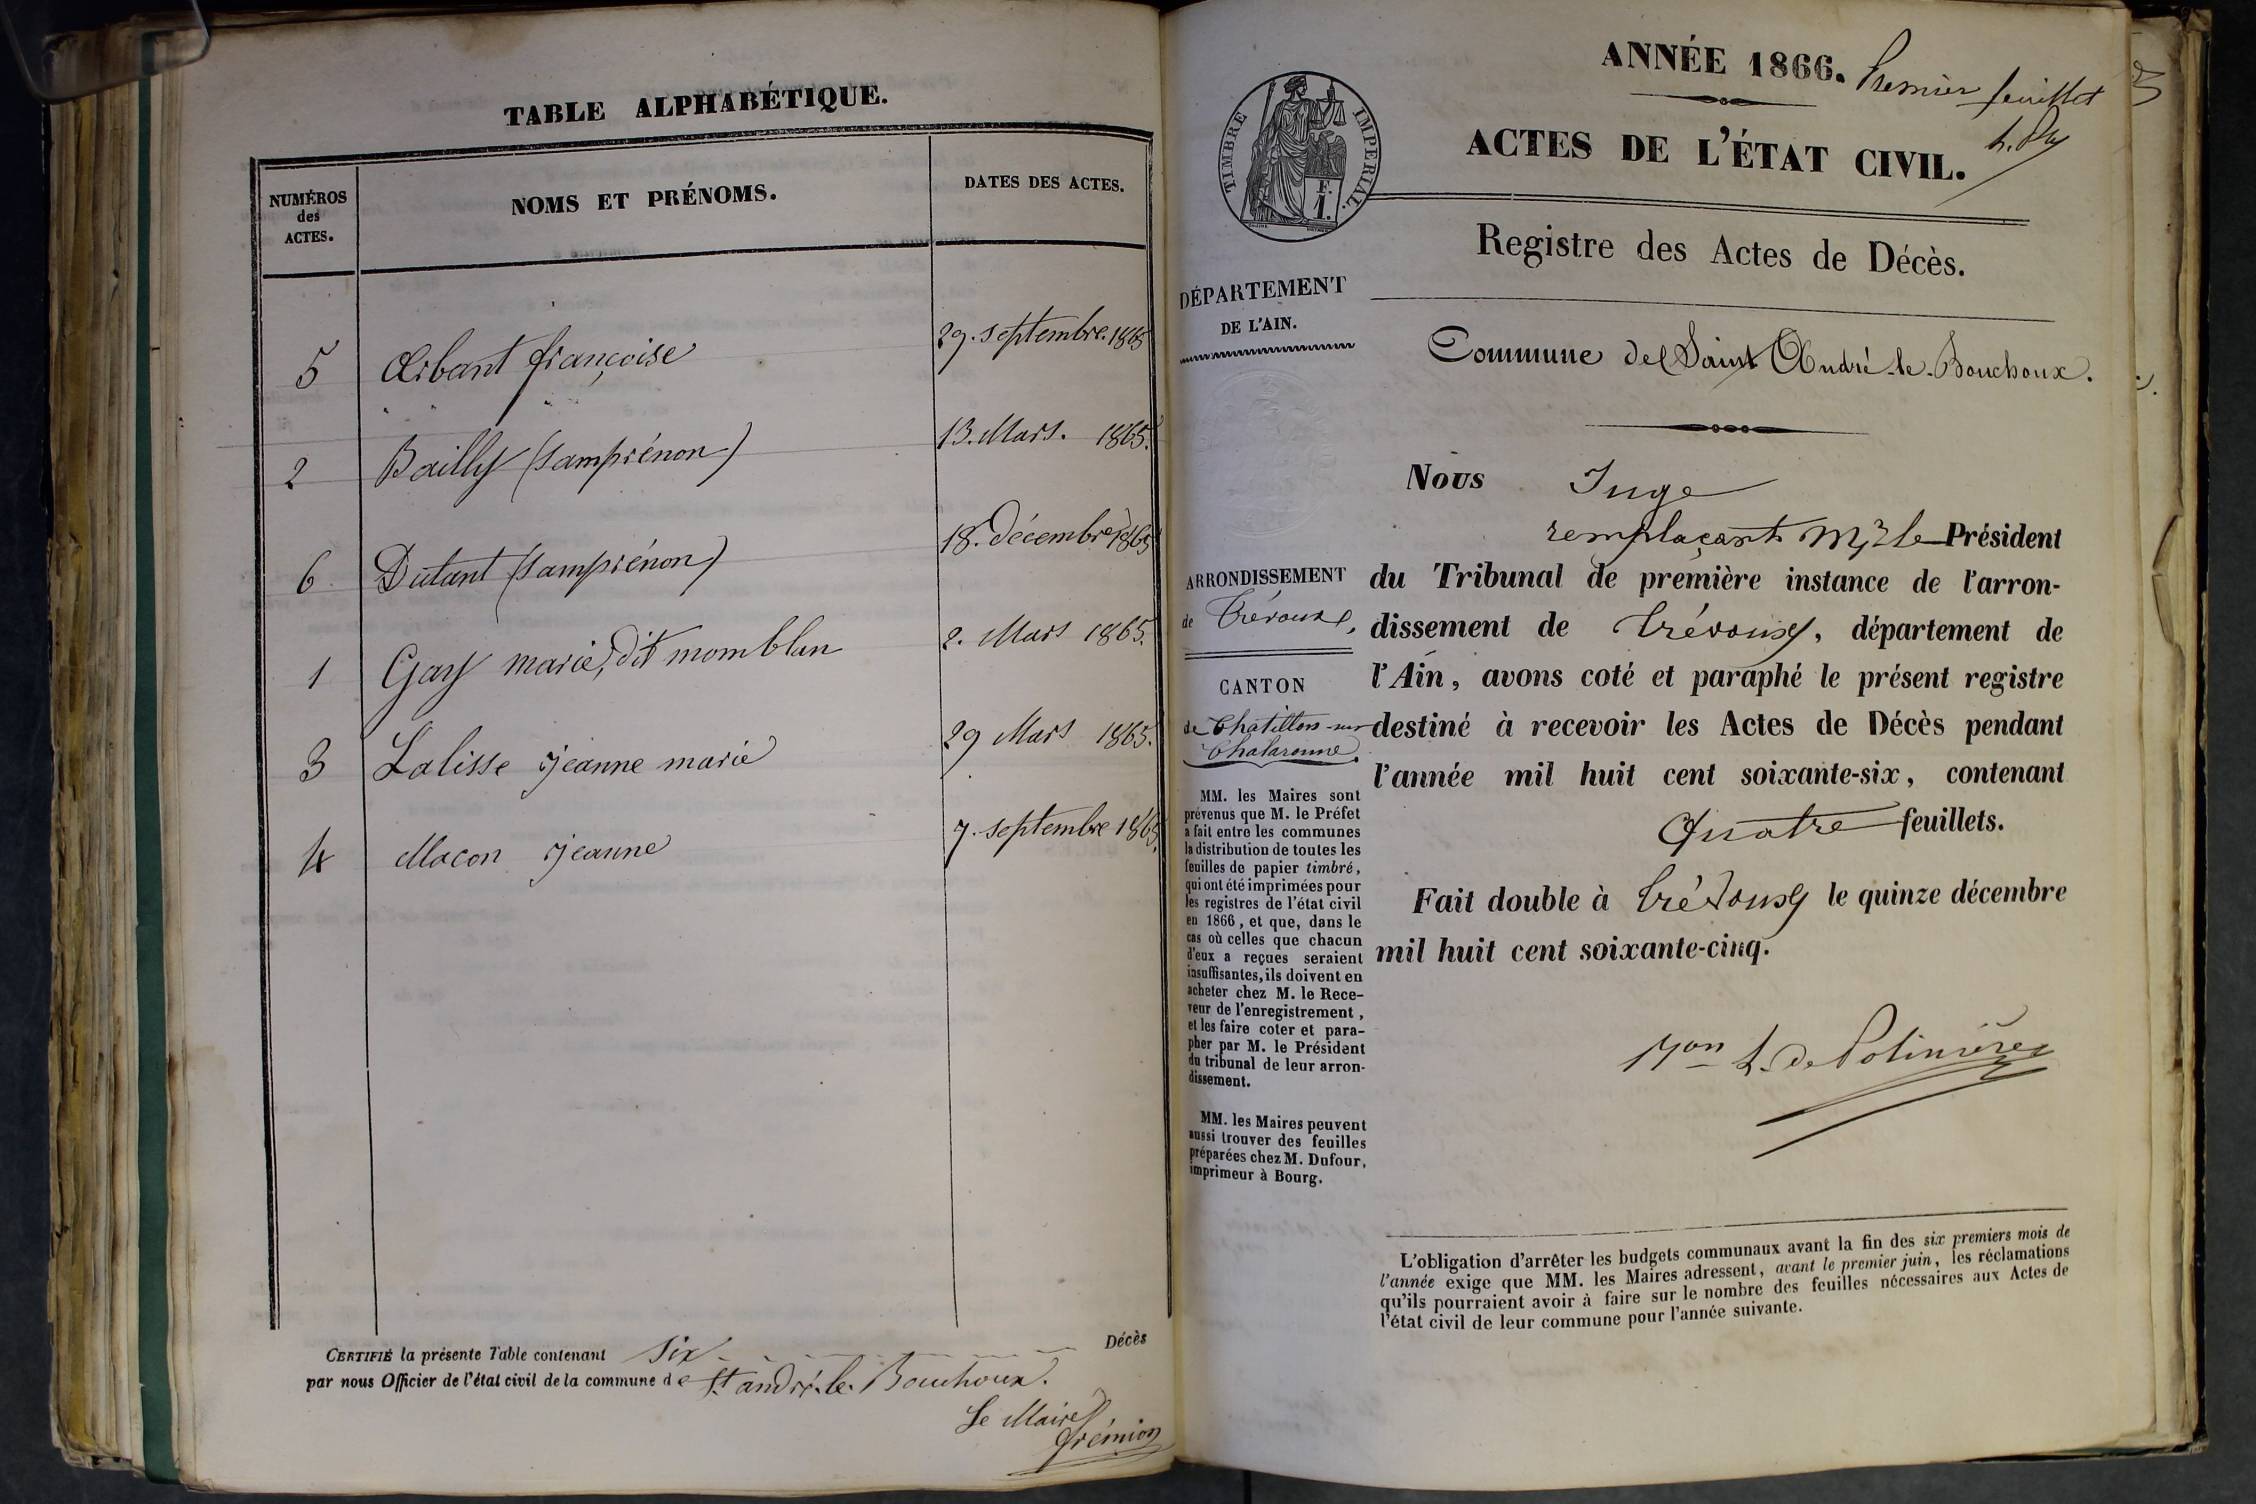 TABLE ALPHABÉTIQUE.
NUMÉROS
des
ACTES.
NOMS ET PRÉNOMS.
DATES DES ACTES.
5 Arbant françoise 29. septembre. 1865
2 Bailly (sansprénon) 13. Mars. 1865.
6 Dutant (sansprénon) 18. décembre 1865
1 Gay marie, dit momblan 2. Mars 1865.
3 Lalisse jeanne marie 29 Mars 1865.
4 Macon jeanne 7. septembre 1865.
CERTIFIÉ la présente Table contenant six Décès
par nous Officier de l'état civil de la commune de St andré-le-Bouchoux.
Le Maire
frémion
ANNÉE 1866.
Premier feuillet
ACTES DE L'ÉTAT CIVIL.
TIMBRE IMPERIAL.
F.
1.
Registre des Actes de Décès.
DÉPARTEMENT
DE L'AIN.
Commune de Saint André-le-Bouchoux.
Nous Juge
remplaçant Mr le Président
du Tribunal de première instance de l'arron-
dissement de Trévoux, département de
l'Ain, avons coté et paraphé le présent registre
destiné à recevoir les Actes de Décès pendant
l'année mil huit cent soixante-six, contenant
Quatre feuillets.
Fait double à Trévoux le quinze décembre
mil huit cent soixante-cinq.
de Polinière
ARRONDISSEMENT
de Trévoux,
CANTON
de Chatillon-sur
Chalaronne.
MM. les Maires sont
prévenus que M. le Préfet
a fait entre les communes
la distribution de toutes les
feuilles de papier timbré,
qui ont été imprimées pour
les registres de l'état civil
en 1866, et que, dans le
cas où celles que chacun
d'eux a reçues seraient
insuffisantes, ils doivent en
acheter chez M. le Rece-
veur de l'enregistrement,
et les faire coter et para-
pher par M. le Président
du tribunal de leur arron-
dissement.
MM. les Maires peuvent
aussi trouver des feuilles
préparées chez M. Dufour,
imprimeur à Bourg.
L'obligation d'arrêter les budgets communaux avant la fin des six premiers mois de
l'année exige que MM. les Maires adressent, avant le premier juin, les réclamations
qu'ils pourraient avoir à faire sur le nombre des feuilles nécessaires aux Actes de
l'état civil de leur commune pour l'année suivante.